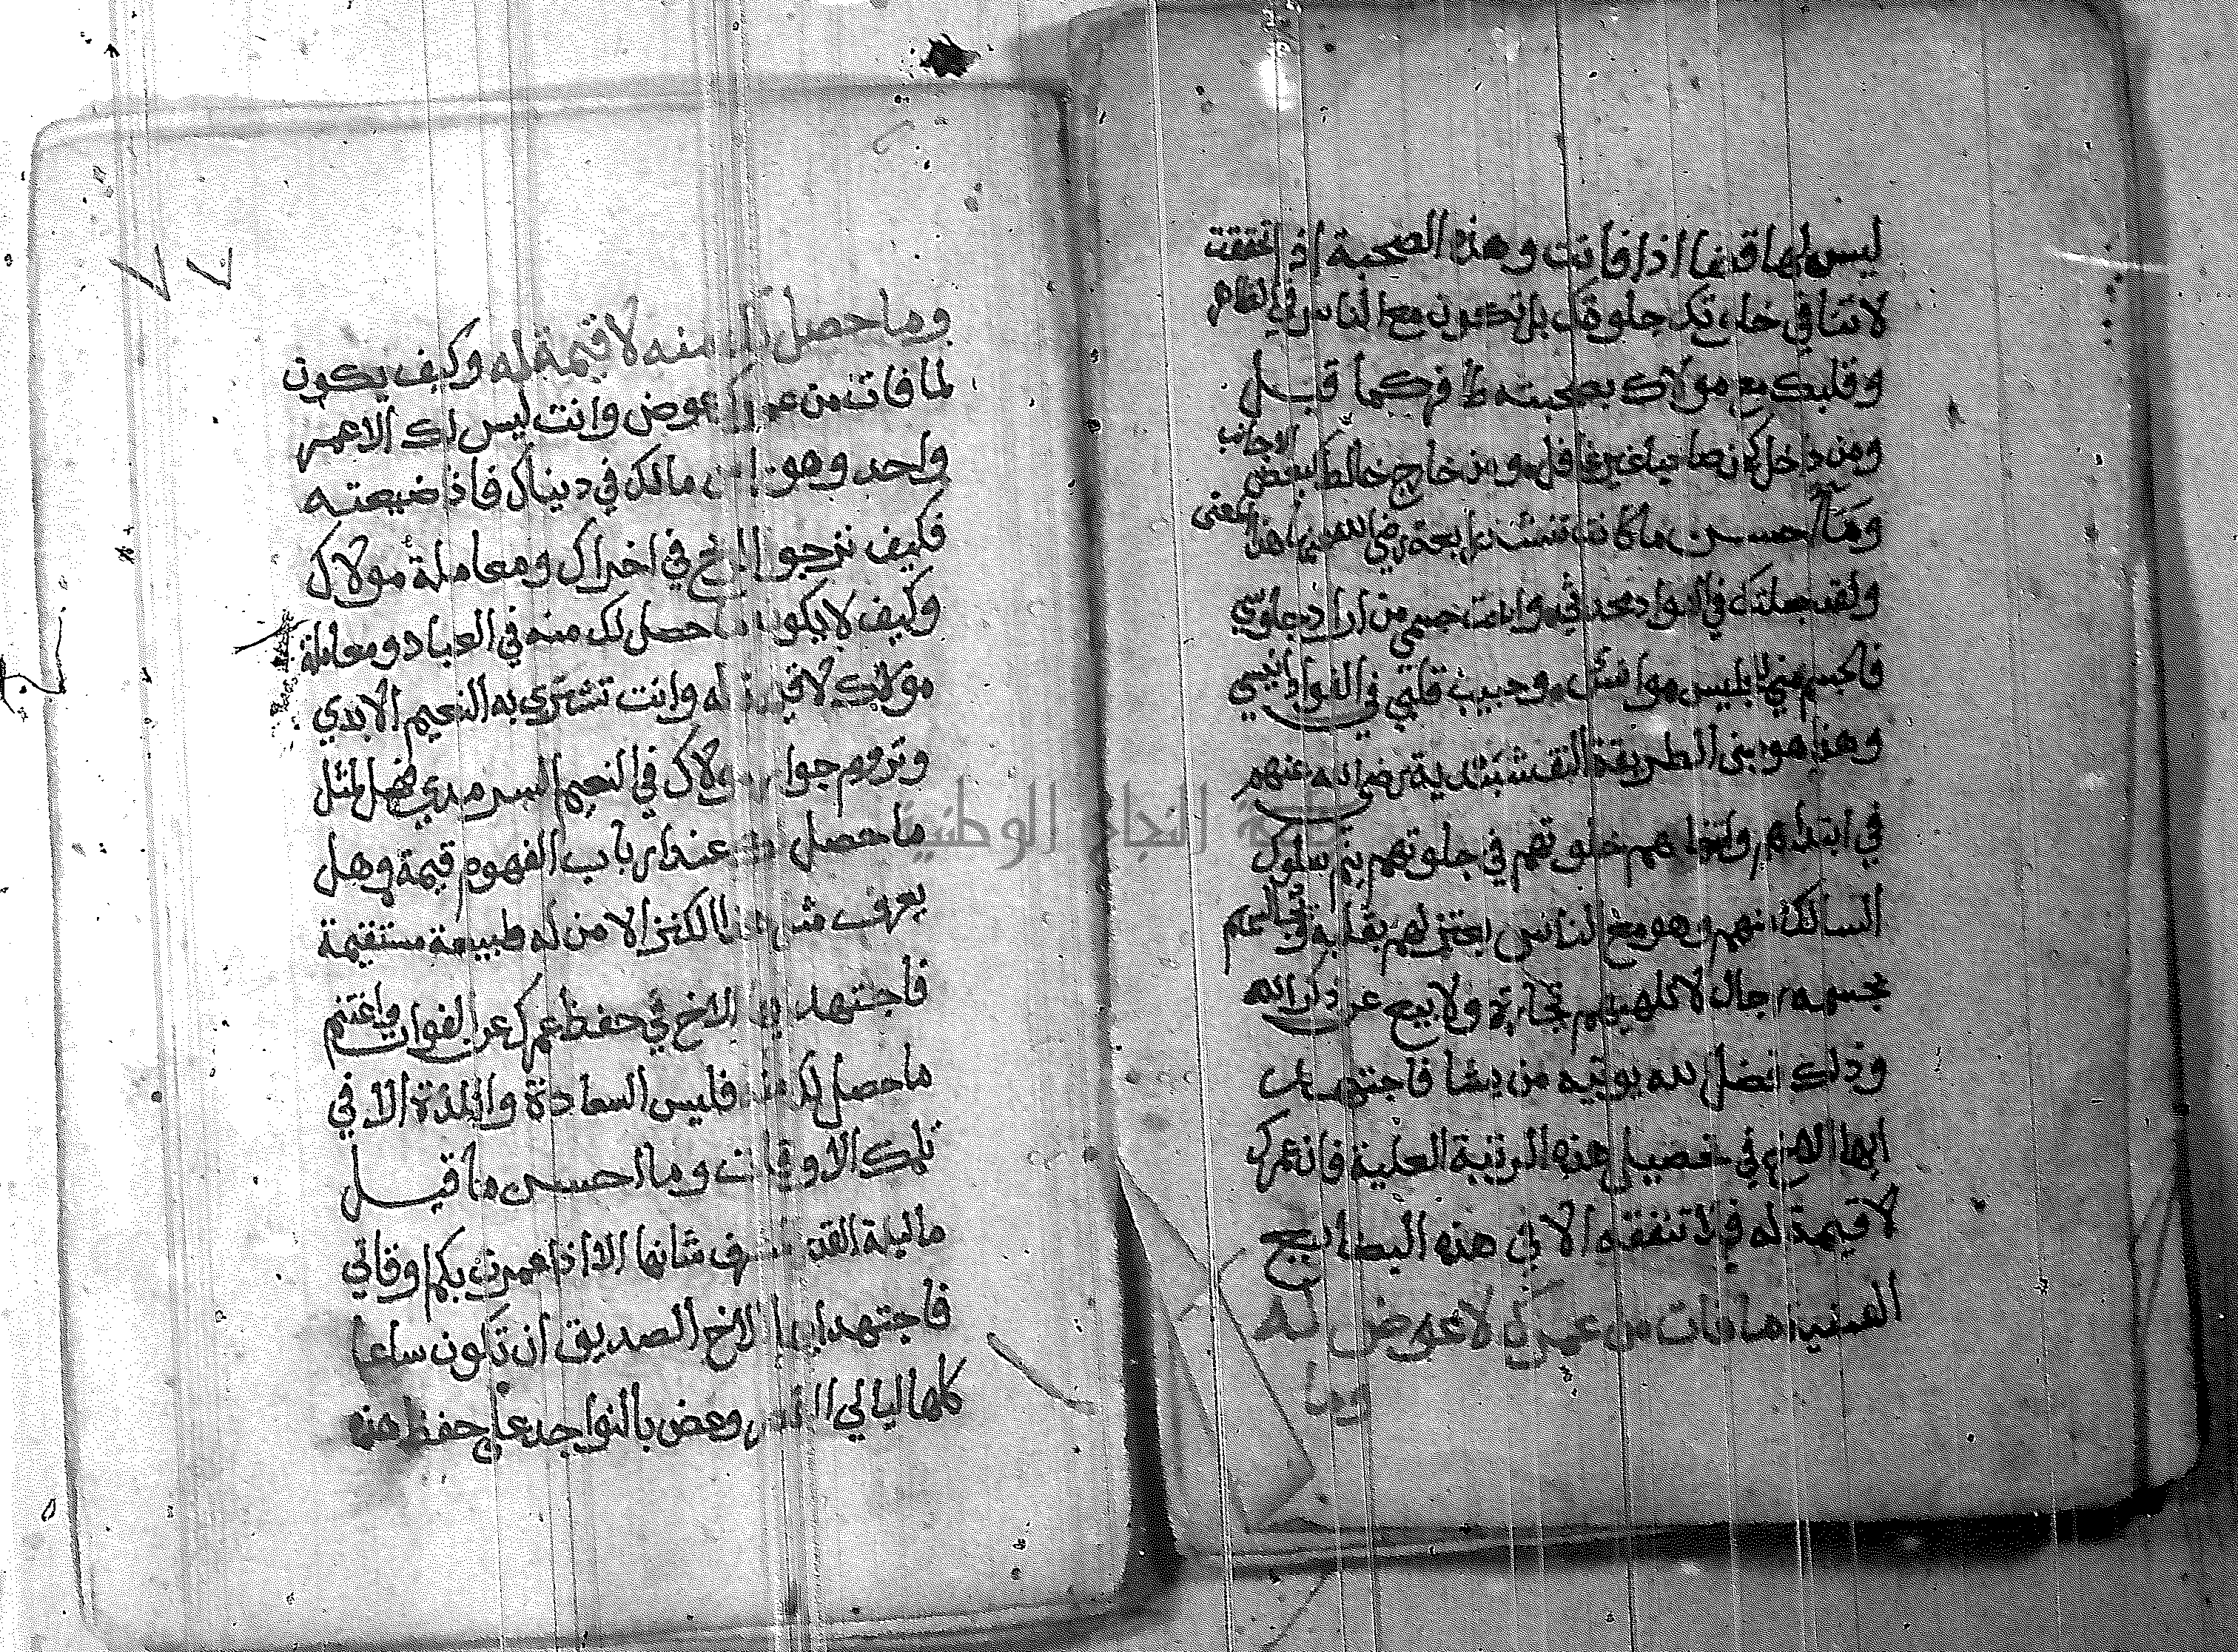 ليس لها قضا اذا فاتت وهذه الصحبة اذ اتحققت
لا تنافي خلوتك جلوتك بل تكون مع الناس في الظاهر
وقلبك مع مولاك بصحبته ظافر كما قيل
ومن داخل كن صاحبا غير غافل ومن خارج خالط كبعض الاجانب
وما احسن ما كانت تنشد رابعة رضي الله عنها هذا المعنى
ولقد جعلتك في الفواد محدثي وابحت جسمي من اراد جلوسي
فالجسم مني للجليس موانس وحبيب قلبي في الفواد انيسي
وهذا هو بنى الطريقة النقشبندية رضي الله عنهم
في ابتداهم وانتهاهم خلوتهم في جلوتهم يتم سلوك
السالك منهم وهو مع الناس يعتزلهم بقلبه وفي
بجسمه رجال لا تلهيهم تجارة ولا بيع عن ذكر الله
وذلك فضل الله يوتيه من يشا فاجتهد
ايها الاخ في تحصيل هذه الرتبة العلية فان عمرك
لا قيمة له فلا تنفقه الا في هذه البضايع
السنية ما فات من عمرك لا عوض له
وما
٧٧
وما حصل لك منه لا قيمة له وكيف يكون
لما فات من عمرك عوض وانت ليس لك الا عمر
واحد وهو راس مالك في دنياك فاذا ضيعته
فكيف ترجوا الربح في اخراك ومعاملة مولاك
وكيف لا يكون ما حصل لك منه في العباد ومعاملة
مولاك لا قيمة له وانت تشتري به النعيم الابدي
وتروم جوار مولاك في النعيم السرمدي فهل لمثل
ما حصل لك عند ارباب الفهوم قيمة وهل
يعرف مثل هذا الكنز الا من له طبيعة مستقيمة
فاجتهد ايها الاخ في حفظ عمرك عن الفوات واغتنم
ما حصل لك منه فليس السعادة واللذة الا في
تلك الاوقات وما احسن ما قيل
ما ليلة القدر تشرف شانها الا اذا عمرت بكم اوقاتي
فاجتهد ايها الاخ الصديق ان تكون ساعا
كلها ليالي القدر وعض بالنواجد على حفظ هذه
جامعة النجاح الوطنية